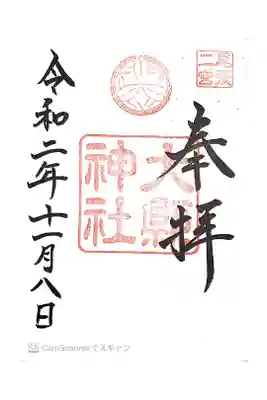 尾張
二宮
奉拝
大縣
神社
令和二年十一月八日
CamScannerでスキャン